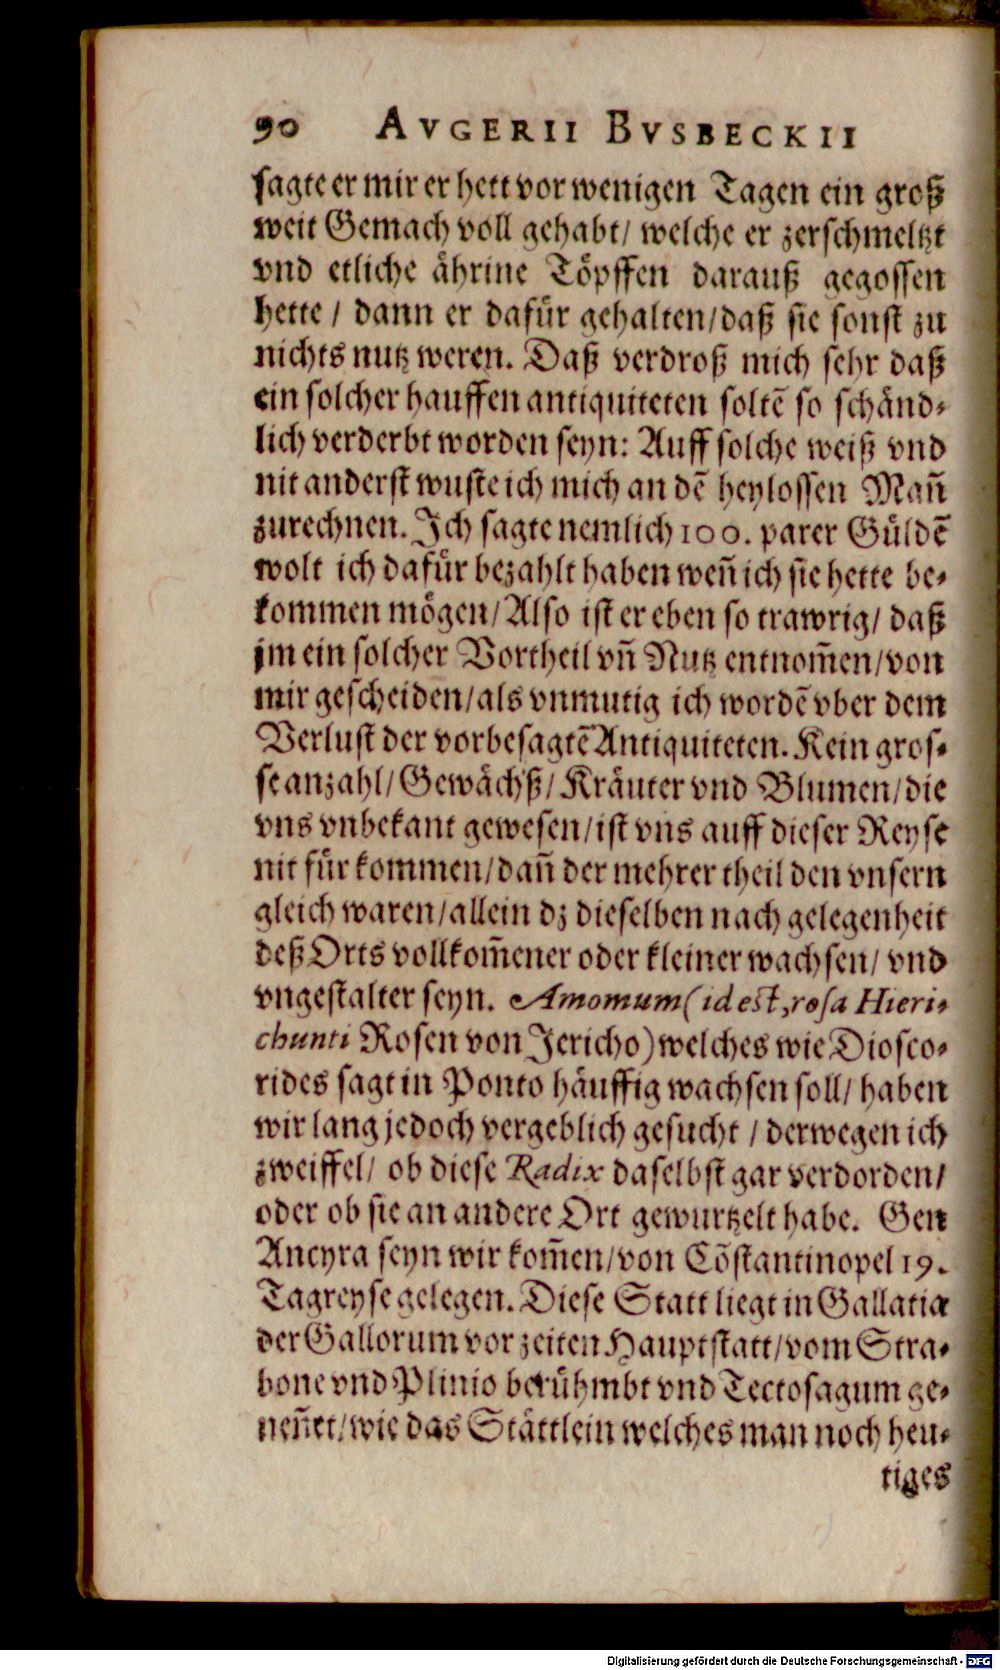 90 AVGERII BVSBECKII
sagte er mir er hett vor wenigen Tagen ein groß
weit Gemach voll gehabt/ welche er zerschmeltzt
vnd etliche ährine Töpffen darauß gegossen
hette / dann er dafür gehalten/daß sie sonst zu
nichts nutz weren. Daß verdroß mich sehr daß
ein solcher hauffen antiquiteten soltē so schänd-
lich verderbt worden seyn: Auff solche weiß vnd
nit anderst wuste ich mich an dē heylossen Mañ
zurechnen. Ich sagte nemlich 100. parer Güldē
wolt ich dafür bezahlt haben weñ ich sie hette be-
kommen mögen/Also ist er eben so trawrig/ daß
jm ein solcher Vortheil vñ Nutz entnom̃en/von
mir gescheiden/als vnmutig ich wordē vber dem
Verlust der vorbesagtē Antiquiteten. Kein gros-
se anzahl/Gewächß/Kräuter vnd Blumen/die
vns vnbekant gewesen/ist vns auff dieser Reyse
nit für kommen/dañ der mehrer theil den vnsern
gleich waren/allein dz dieselben nach gelegenheit
deß Orts vollkom̃ener oder kleiner wachsen/ vnd
vngestalter seyn. Amomum (id est, rosa Hieri-
chunti Rosen von Jericho) welches wie Diosco-
rides sagt in Ponto häuffig wachsen soll/ haben
wir lang jedoch vergeblich gesucht / derwegen ich
zweiffel/ ob diese Radix daselbst gar verdorden/
oder ob sie an andere Ort gewurtzelt habe. Gen
Ancyra seyn wir kom̃en/von Cõstantinopel 19.
Tagreyse gelegen. Diese Statt liegt in Gallatia
der Gallorum vor zeiten Hauptstatt/vom Stra-
bone vnd Plinio berühmbt vnd Tectosagum ge-
neñet/wie das Stättlein welches man noch heu-
tiges
Digitalisierung gefördert durch die Deutsche Forschungsgemeinschaft - DFG